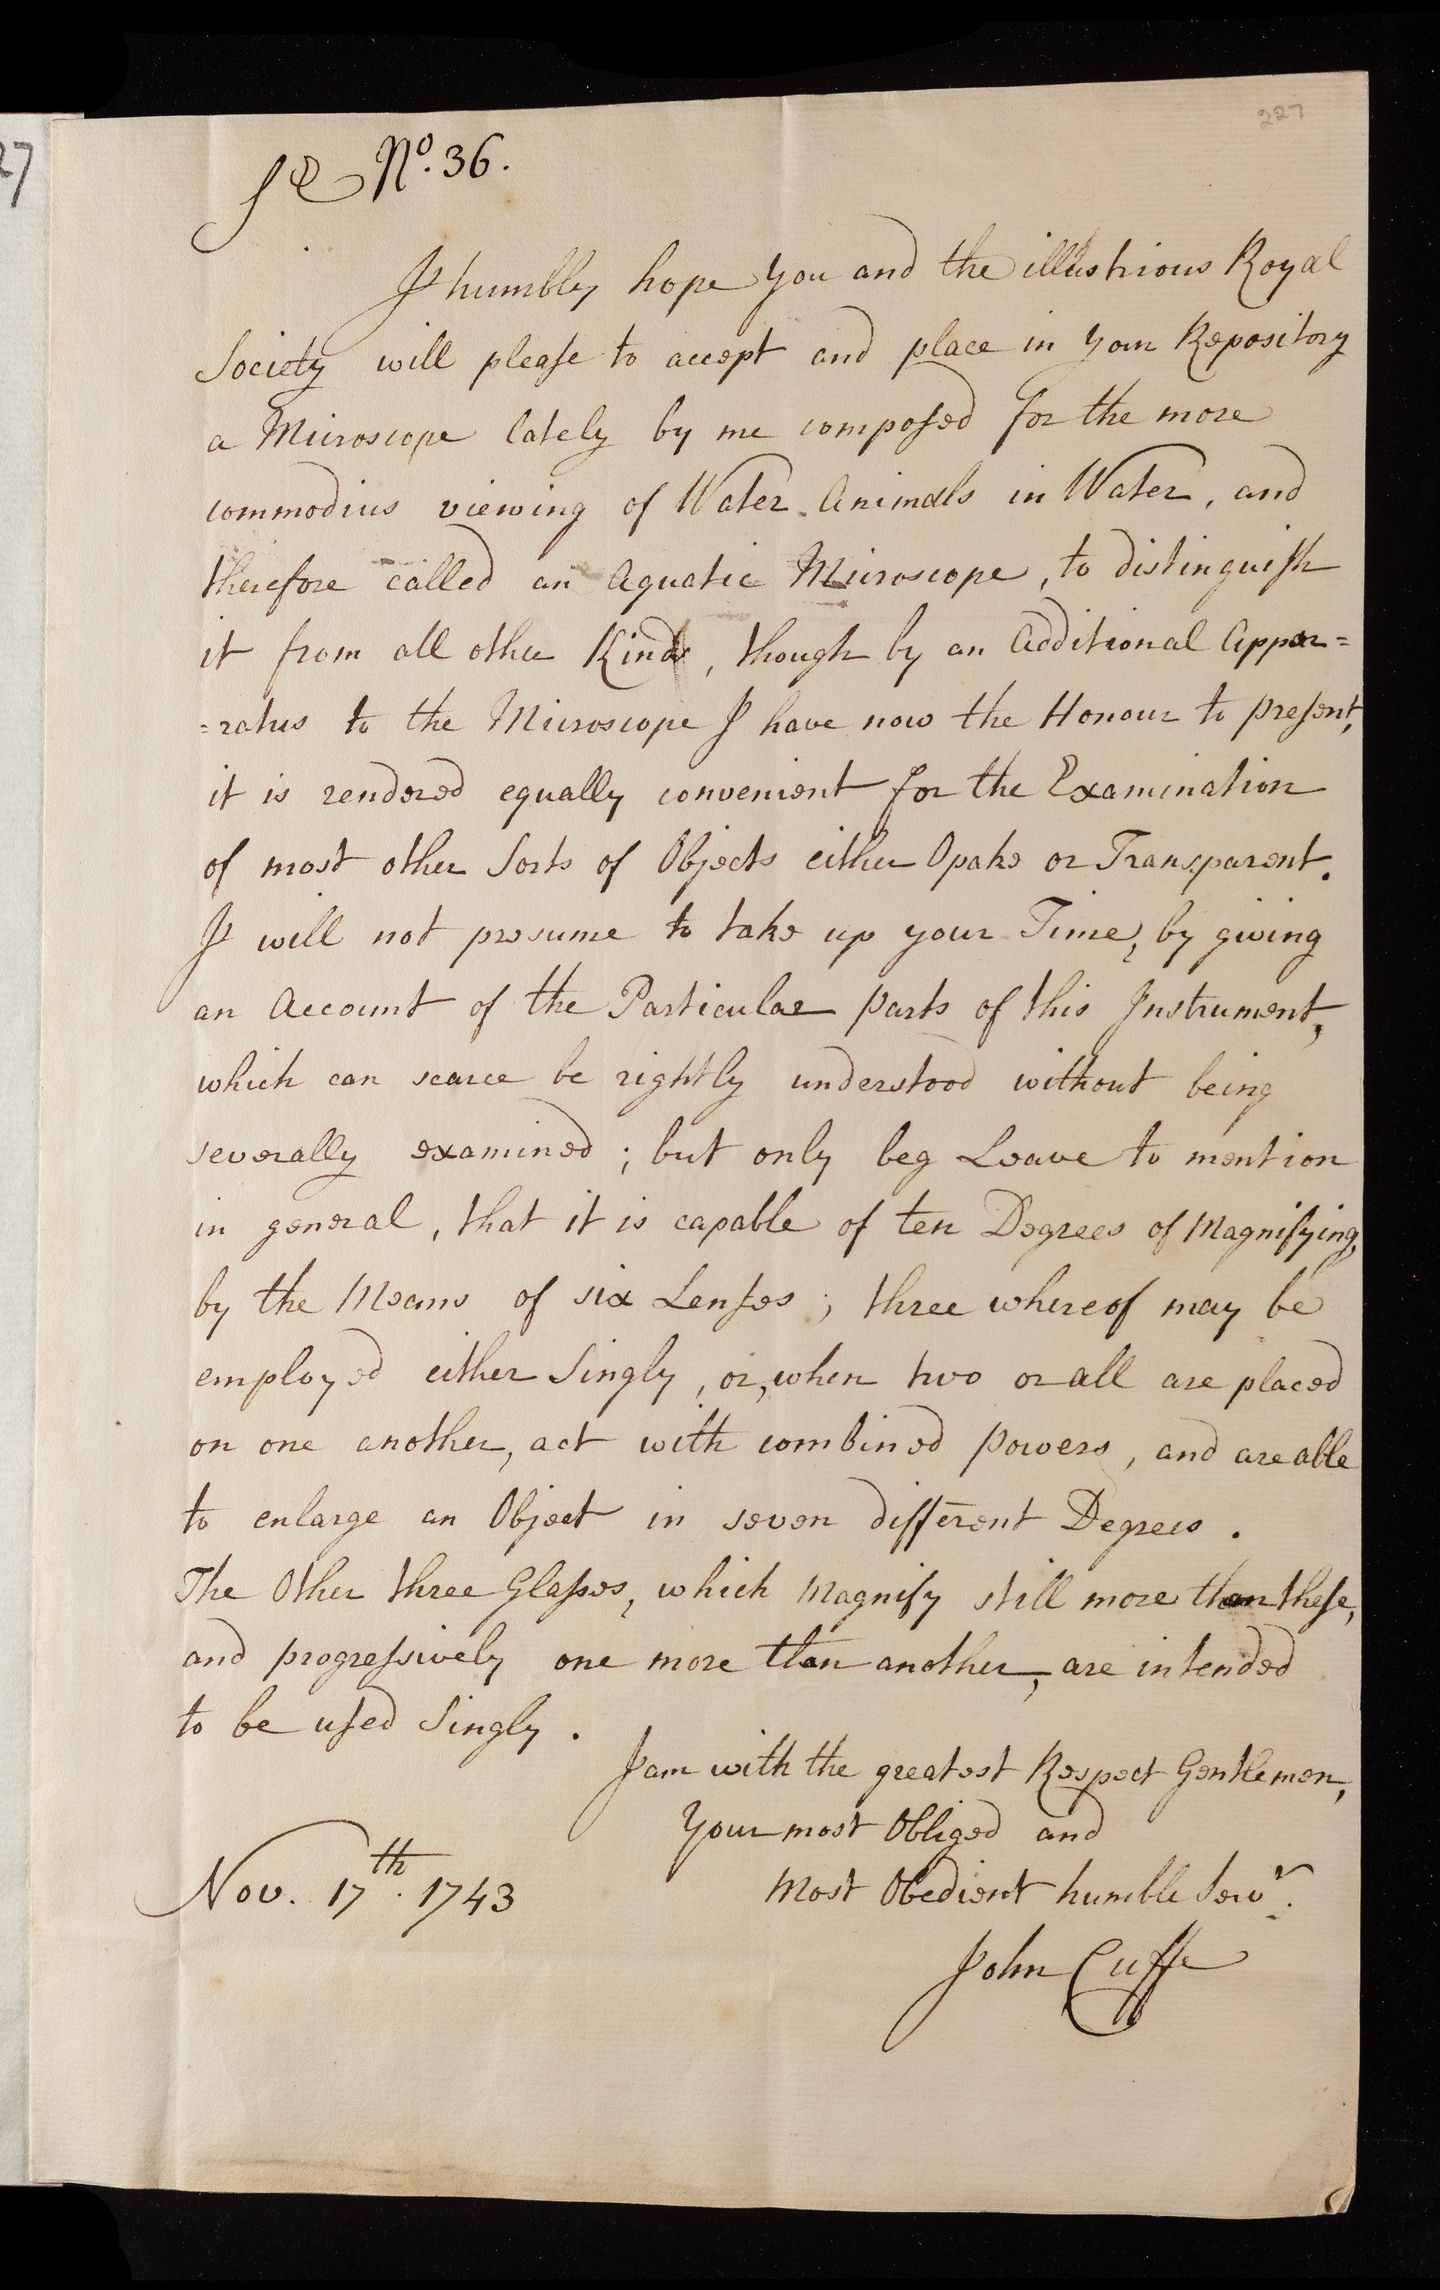 227
27
Sr No. 36.
I humbly hope you and the illustrious Royal
Society will please to accept and place in your Repository
a Microscope lately by me composed for the more
commodius viewing of Water Animals in Water, and
therefore called an Aquatic Microscope, to distinguish
it from all other Kinds, though by an Additional Appar=
=ratus to the Microscope I have now the Honour to present,
it is rendered equally convenient for the Examination
of most other Sorts of Objects either Opake or Transparent.
I will not presume to take up your Time, by giving
an Account of the Particular parts of this Instrument,
which can scarce be rightly understood without being
severally examined; but only beg Leave to mention
in general, that it is capable of ten Degrees of Magnifying,
by the Means of six Lenses; three whereof may be
employed either Singly, or, when two or all are placed
on one another, act with combined powers, and are able
to enlarge an Object in seven different Degrees.
The Other three Glasses, which Magnify still more than these,
and progressively one more than another, are intended
to be used Singly.
I am with the greatest Respect Gentlemen,
Your most Obliged and
Most Obedient humble Servr.
Nov. 17th. 1743
John Cuffe